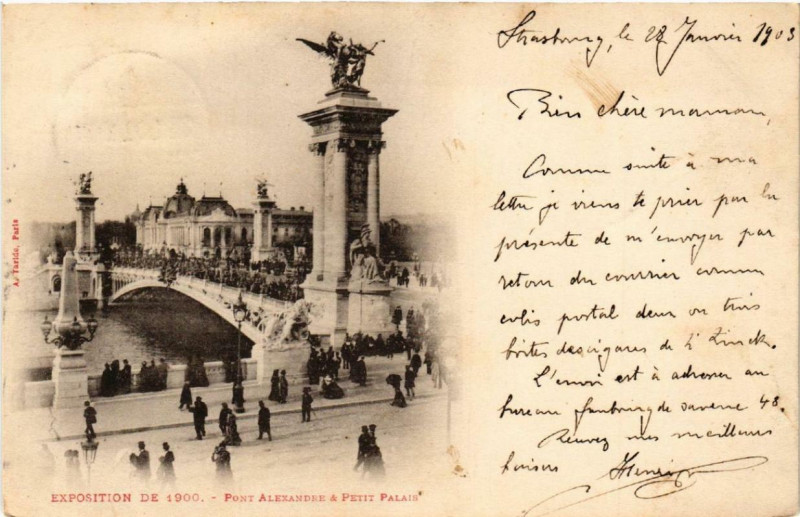 Strasbourg, le 28 Janvier 1903
Bien chère maman,
Comme suite à ma
lettre je viens te prier par la
présente de m'envoyer par
retour du courrier comme
colis postal deux ou trois
boîtes de cigares de
L'envoi est à adresser au
bureau faubourg de saverne 48.
Recevez mes meilleurs
baisers Henri
A. Taride, Paris
EXPOSITION DE 1900. - PONT ALEXANDRE & PETIT PALAIS